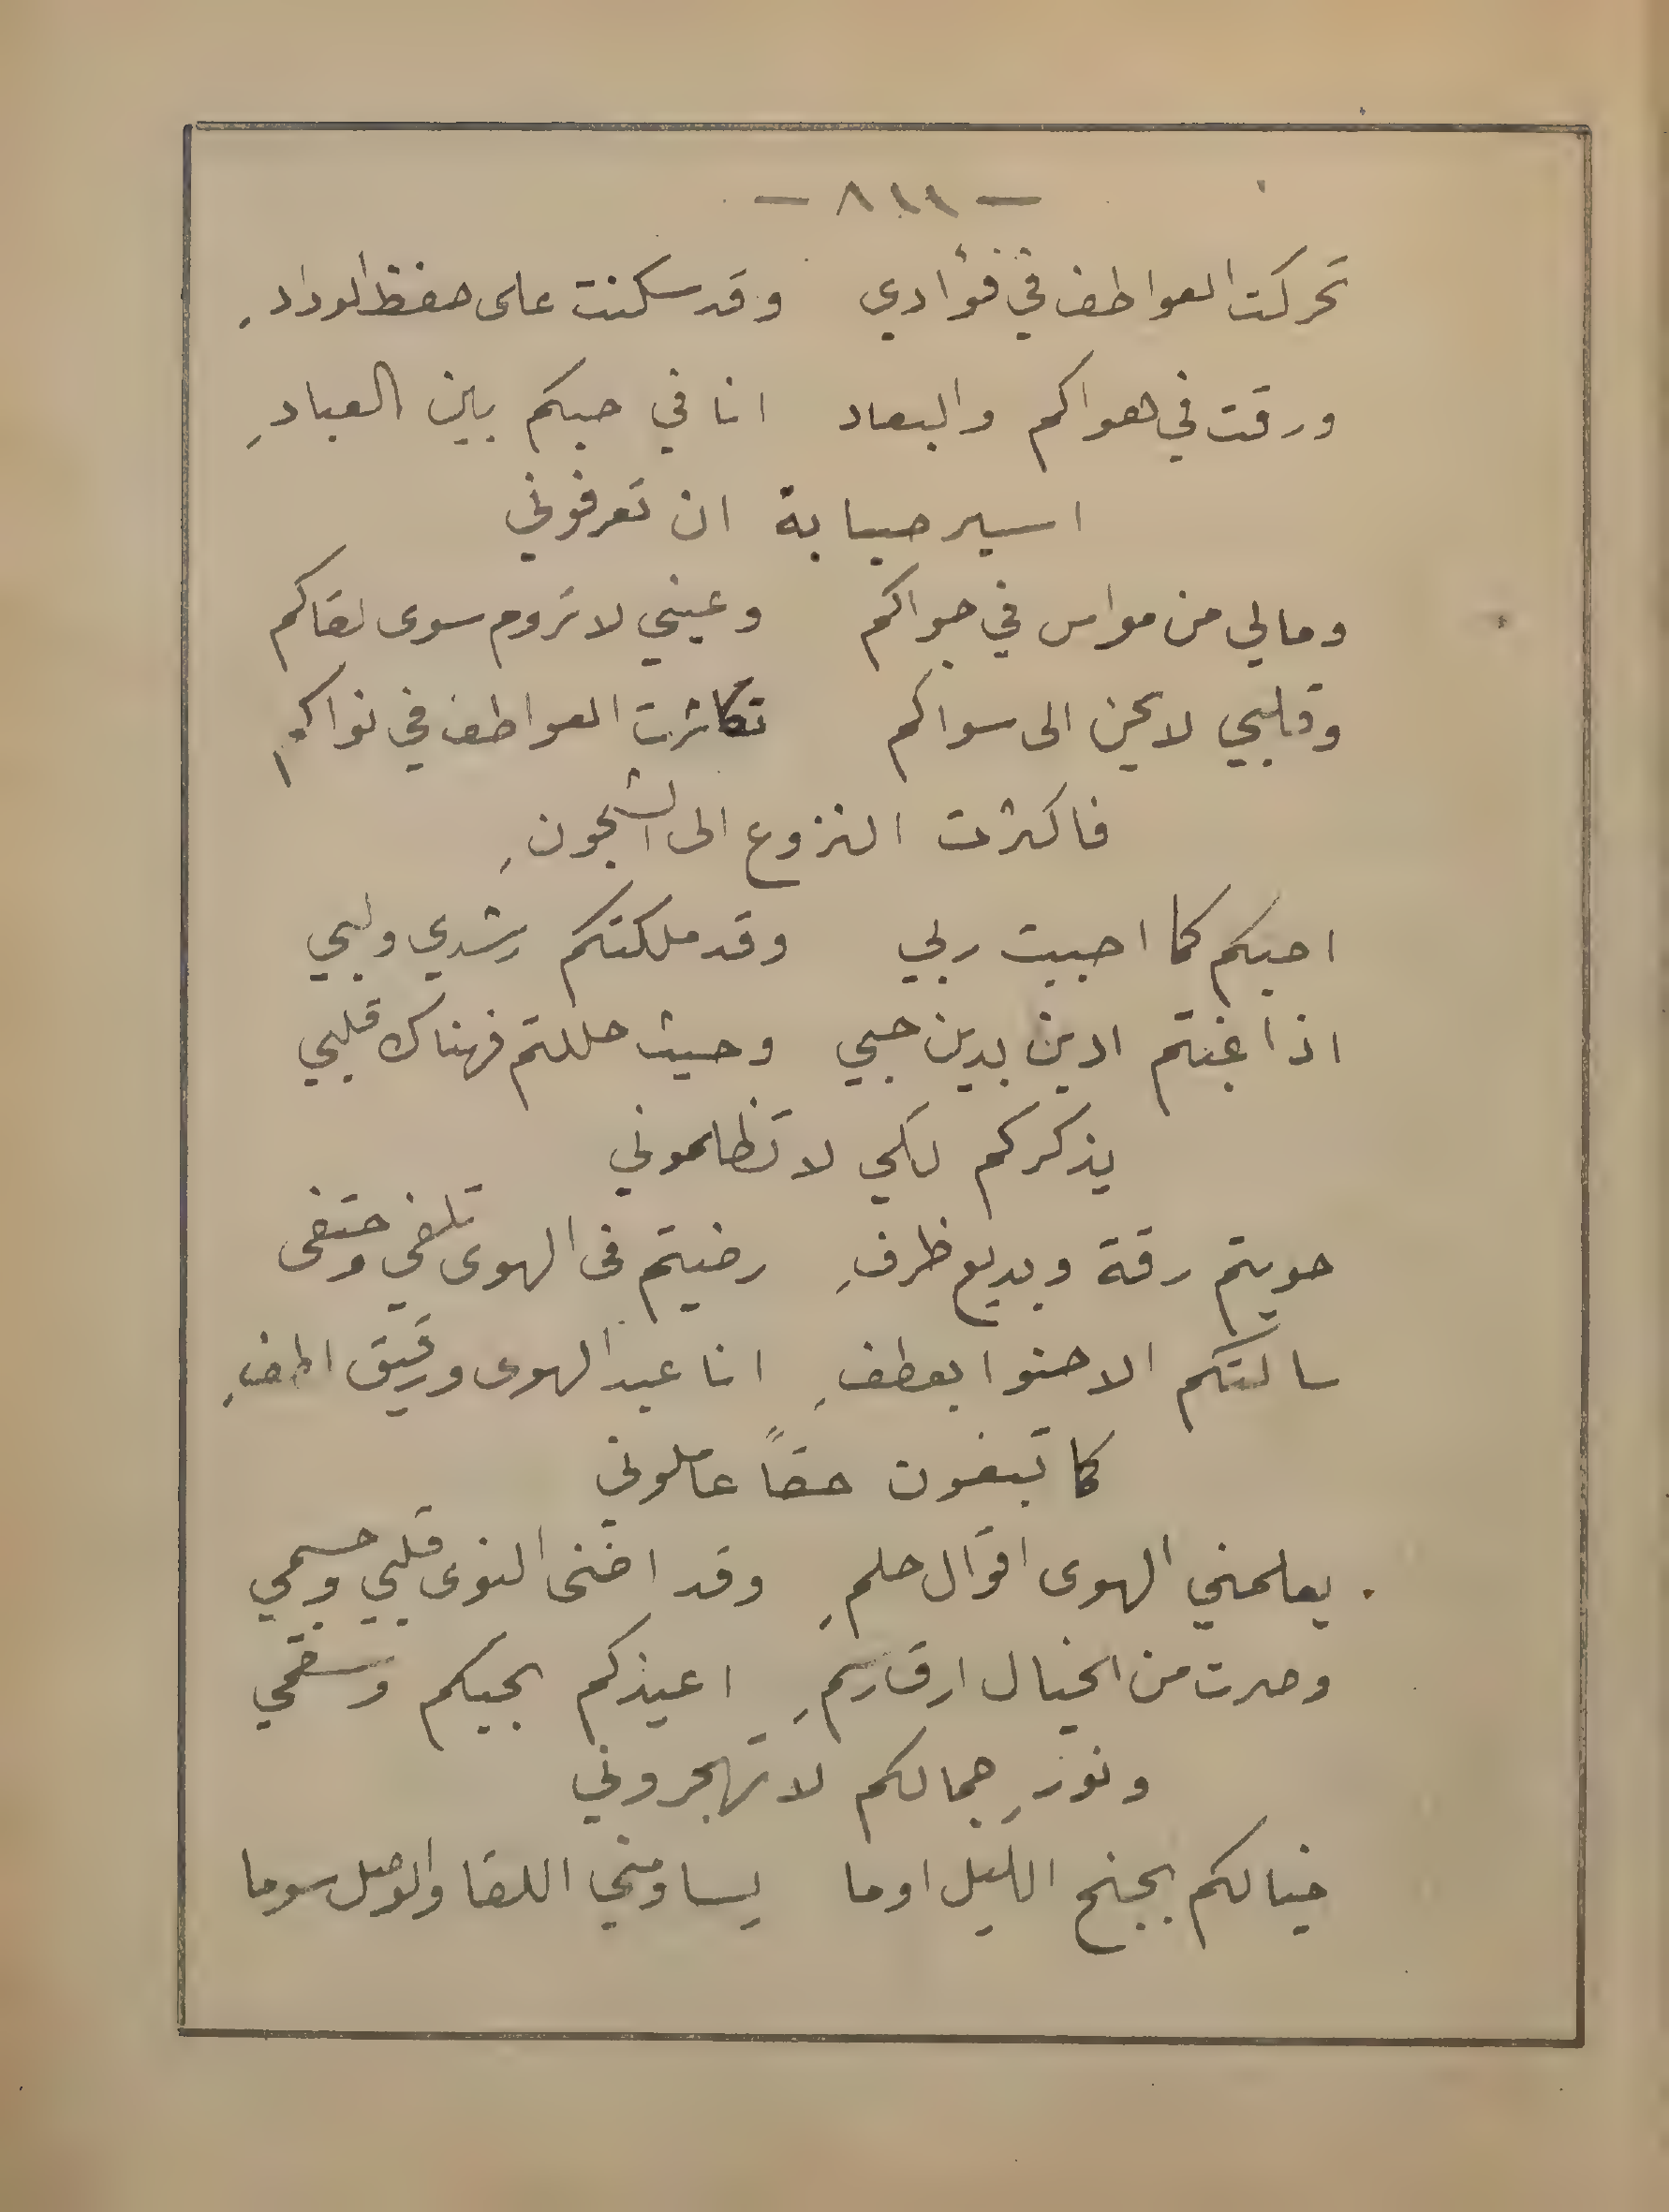 — ٨١١ —
تحركت العواطف في فؤادي وقد سكنت على حفظ الودادِ
ورقت في هواكم والبعاد انا في حبكم بين العبادِ
اسير صبابة ان تعرفوني
ومالي من مواس في جواكم وعيني لا تروم سوى لقاكم
وقلبي لا يحن الى سواكم تكاثرت العواطف في نواكم
فاكثرت النزوع الى الشجونِ
احبكم كما احببت ربي وقد ملكتكم رشدي ولبي
اذا غبتم ادين بدين حبي وحيث حللتم فهناك قلبي
يذكركم لكي لا تظلموني
حويتم رقة وبديع ظرفِ رضيتم في الهوى تلفي وحتفى
سالتكم الاحنوا بعطفِ انا عبد الهوى ورقيق لطفِ
كما تبغون حقاً عاملوني
يعلمني الهوى اقوال حلمِ وقد اضنى النوى قلبي وجسمي
وصرت من الخيال ارق رسمِ اعيذكم بحبكم وسقمي
ونورِ جمالكم لا تهجروني
خيالكم بجنح الليل اوما يساومني اللقا والوصل سوما